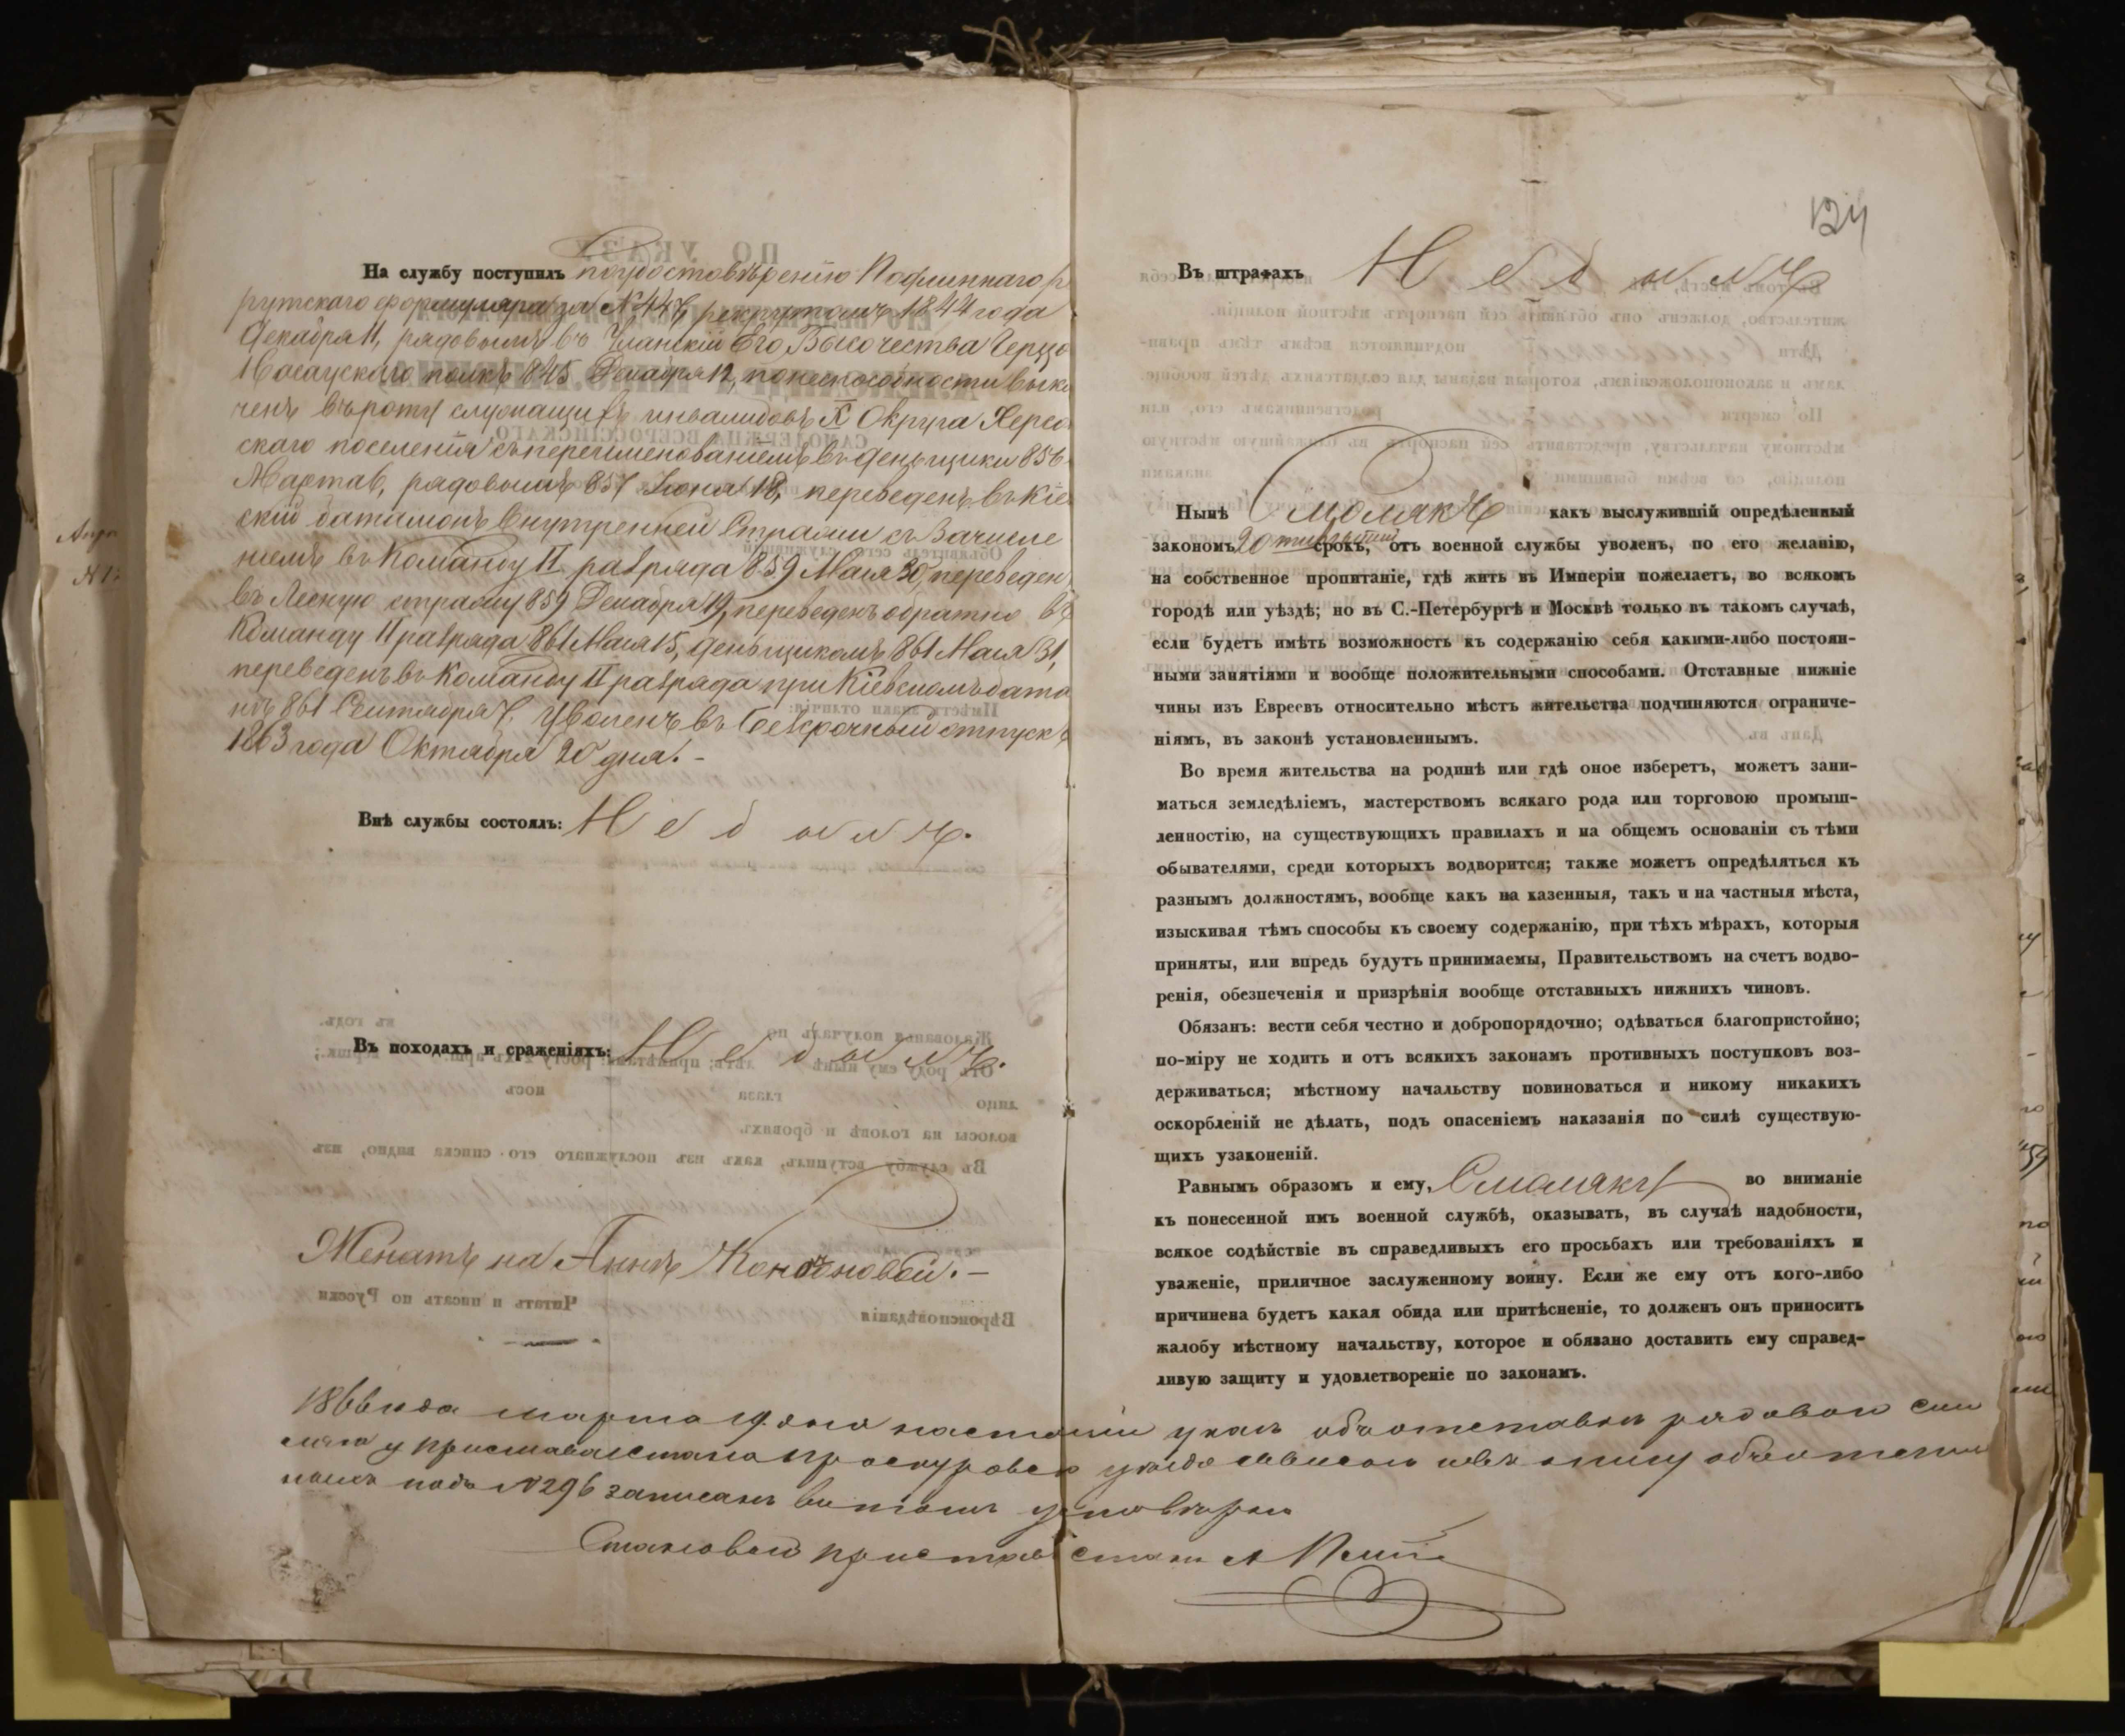 На службу поступилъ по удостовѣренію
рутскаго формуляра за № 447, рекрутомъ 1844 года
Декабря 11, рядовымъ въ Уланскій Его Высочества Герцо
Нассаускаго полкъ 845 Декабря 12, по неспособности выклю
ченъ въ роту служащихъ инвалидовъ X Округа Херсо
скаго поселенія съ переименованіемъ въ деньщики 856
Марта 6, рядовымъ 857 Іюня 18, переведенъ въ Кіе
скій баталіонъ Внутренней Стражи съ Зачисле
ніемъ въ Команду II разряда 859 Мая 30, переведенъ
въ Лесную стражу 859 Декабря 19, переведенъ обратно въ
Команду II разряда 861 Мая 15, деньщикомъ 861 Мая 31,
переведенъ въ Команду II разряда при Кіевскомъ бата
нъ 861 Сентября 7, Уволенъ въ безсрочный отпускъ
1863 года Октября 20 дня. -
Внѣ службы состоялъ: Не былъ.
Въ походахъ и сраженіяхъ: Не былъ.
Женатъ на Аннѣ
1866 года марта 19 дня указъ объ отставкѣ рядовой
у пристава стана Проскуровско уѣзда
подъ № 296 записанъ въ томъ удостовѣряю
Становой приставъ стана
124
Въ штрафахъ Не былъ
Нынѣ Смолякъ какъ выслужившій опредѣленный
закономъ 20 тилѣтній срокъ, отъ военной службы уволенъ, по его желанію,
на собственное пропитаніе, гдѣ жить въ Имперіи пожелаетъ, во всякомъ
городѣ или уѣздѣ; но въ С.-Петербургѣ и Москвѣ только въ такомъ случаѣ,
если будетъ имѣть возможность къ содержанію себя какими-либо постоян-
ными занятіями и вообще положительными способами. Отставные нижніе
чины изъ Евреевъ относительно мѣстъ жительства подчиняются ограниче-
ніямъ, въ законѣ установленнымъ.
Во время жительства на родинѣ или гдѣ оное изберетъ, можетъ зани-
маться земледѣліемъ, мастерствомъ всякаго рода или торговою промыш-
ленностію, на существующихъ правилахъ и на общемъ основаніи съ тѣми
обывателями, среди которыхъ водворится; также можетъ опредѣляться къ
разнымъ должностямъ, вообще какъ на казенныя, такъ и на частныя мѣста,
изыскивая тѣмъ способы къ своему содержанію, при тѣхъ мѣрахъ, которыя
приняты, или впредь будутъ принимаемы, Правительствомъ на счетъ водво-
ренія, обезпеченія и призрѣнія вообще отставныхъ нижнихъ чиновъ.
Обязанъ: вести себя честно и добропорядочно; одѣваться благопристойно;
по-міру не ходить и отъ всякихъ законамъ противныхъ поступковъ воз-
держиваться; мѣстному начальству повиноваться и никому никакихъ
оскорбленій не дѣлать, подъ опасеніемъ наказанія по силѣ существую-
щихъ узаконеній.
Равнымъ образомъ и ему, Смоляку во вниманіе
къ понесенной имъ военной службѣ, оказывать, въ случаѣ надобности,
всякое содѣйствіе въ справедливыхъ его просьбахъ или требованіяхъ и
уваженіе, приличное заслуженному воину. Если же ему отъ кого-либо
причинена будетъ какая обида или притѣсненіе, то долженъ онъ приносить
жалобу мѣстному начальству, которое и обязано доставить ему справед-
ливую защиту и удовлетвореніе по законамъ.